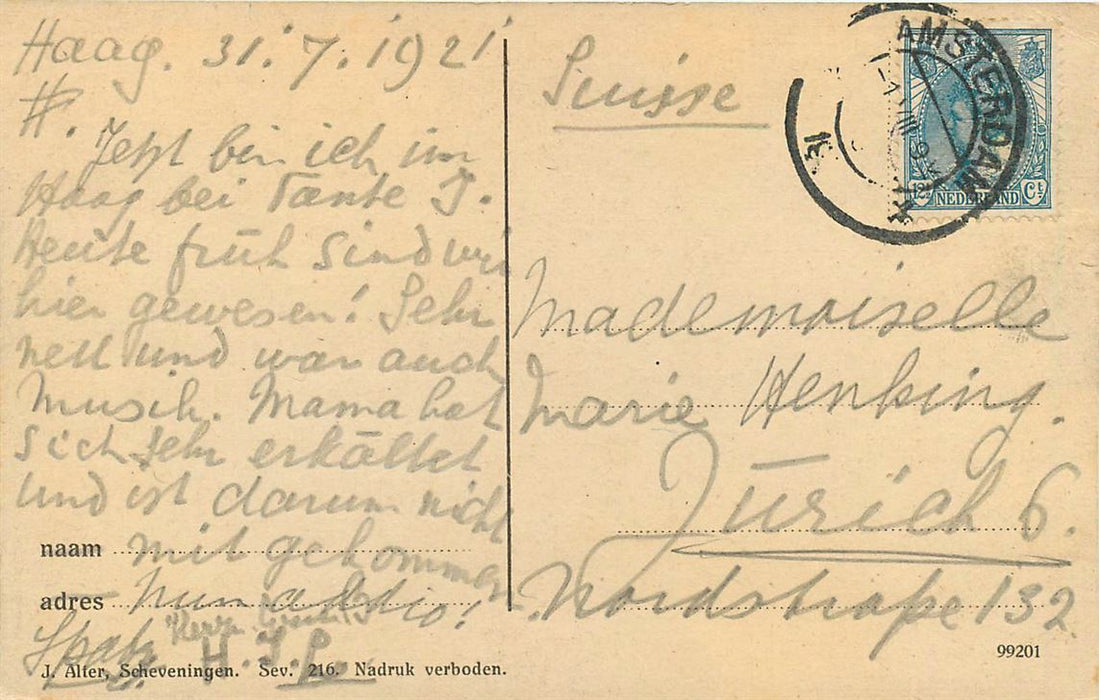 Haag. 31. 7. 1921
H.
Jetzt bin ich im
Haag bei Tante J.
Heute früh sind wir
hier gewesen! Sehr
nett und war auch
Musik. Mama hat
sich sehr erkältet
und ist darum nicht
mit gekommen
Nun addio!
Herr
H. J. L.
naam
adres
J. Alter, Scheveningen. Sev. 216. Nadruk verboden.
Suisse
AMSTERDAM
12½ NEDERLAND Ct
Mademoiselle
Marie Henking.
Zürich 6.
Nordstraße 132
99201